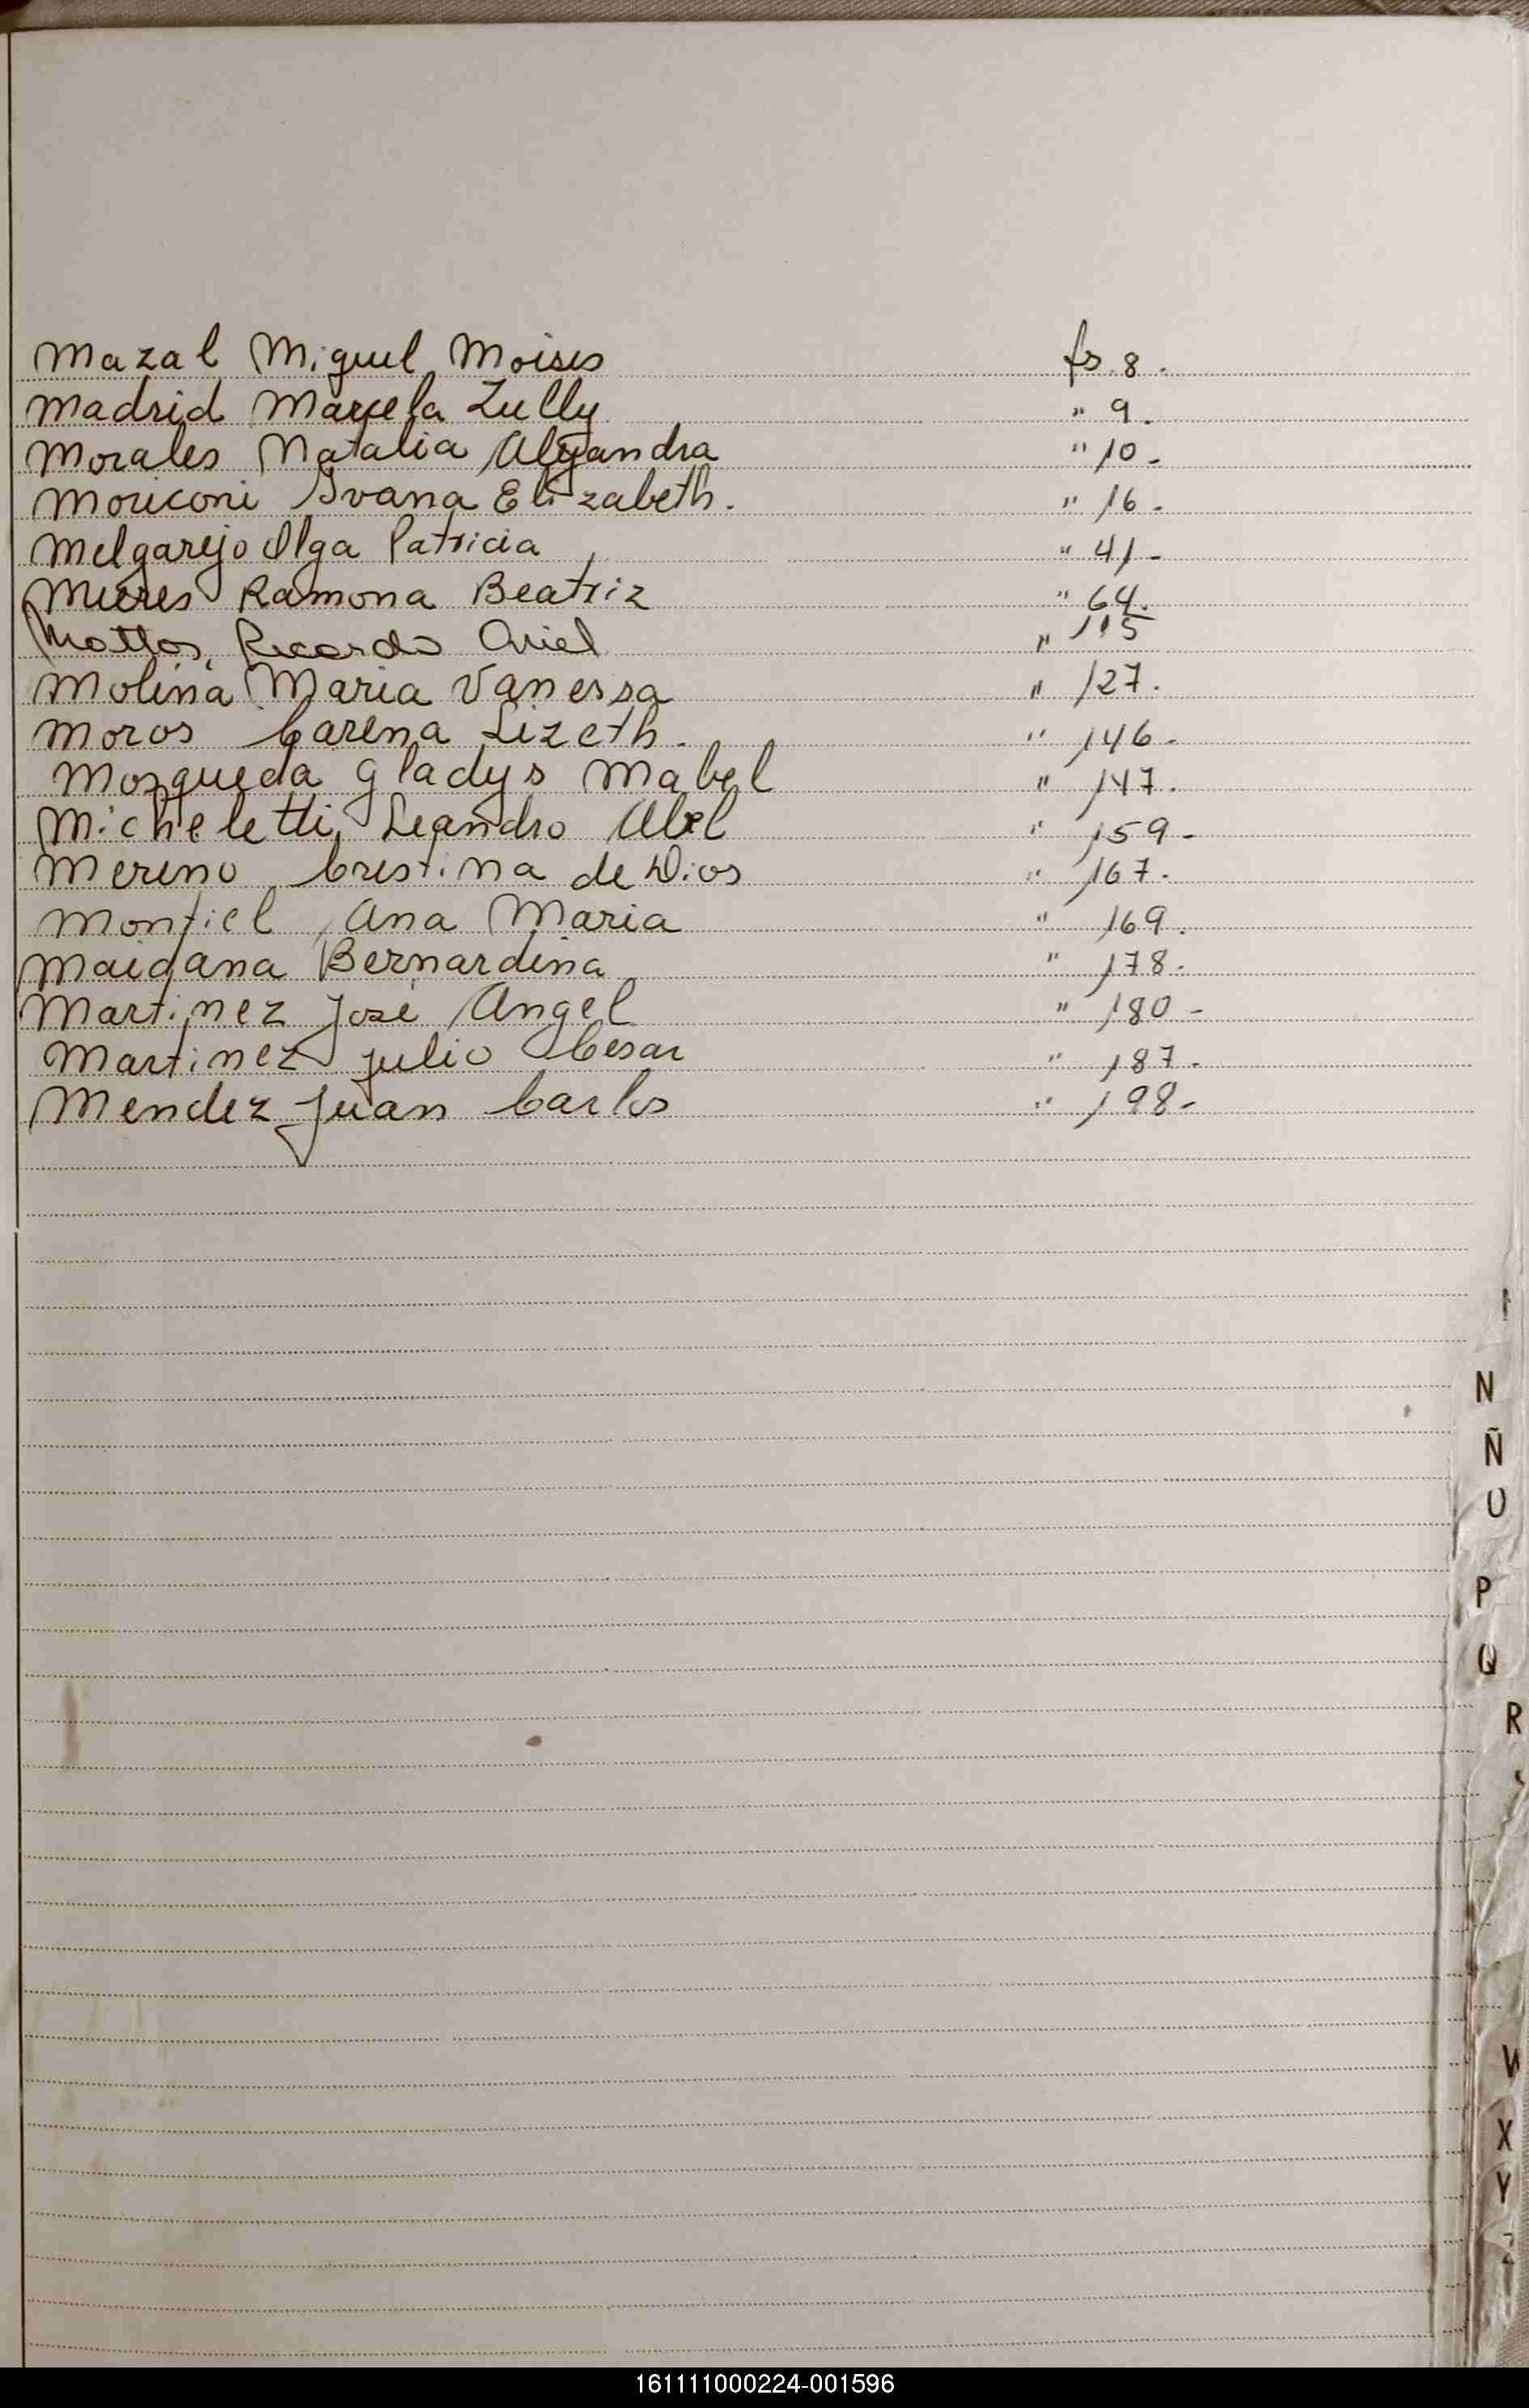 Mazal Miguel Moises fs. 8.
Madrid Marcela Zully " 9.
Morales Natalia Alejandra " 10-
Moriconi Ivana Elizabeth. " 16-
Melgarejo Olga Patricia " 41-
Mieres Ramona Beatriz " 64.
Mattos, Ricardo Ariel " 115
Molina Maria Vanessa " 127.
Moros Carina Lizeth. " 146-
Mosqueda Gladys Mabel " 147.
Micheletti Leandro Abel " 159-
Merino Cristina de Dios " 167.
Montiel Ana Maria " 169.
Maidana Bernardina " 178.
Martinez José Angel " 180-
Martinez Julio Cesar " 187.
Mendez Juan Carlos " 198-
N
Ñ
O
P
Q
R
X
Y
161111000224-001596